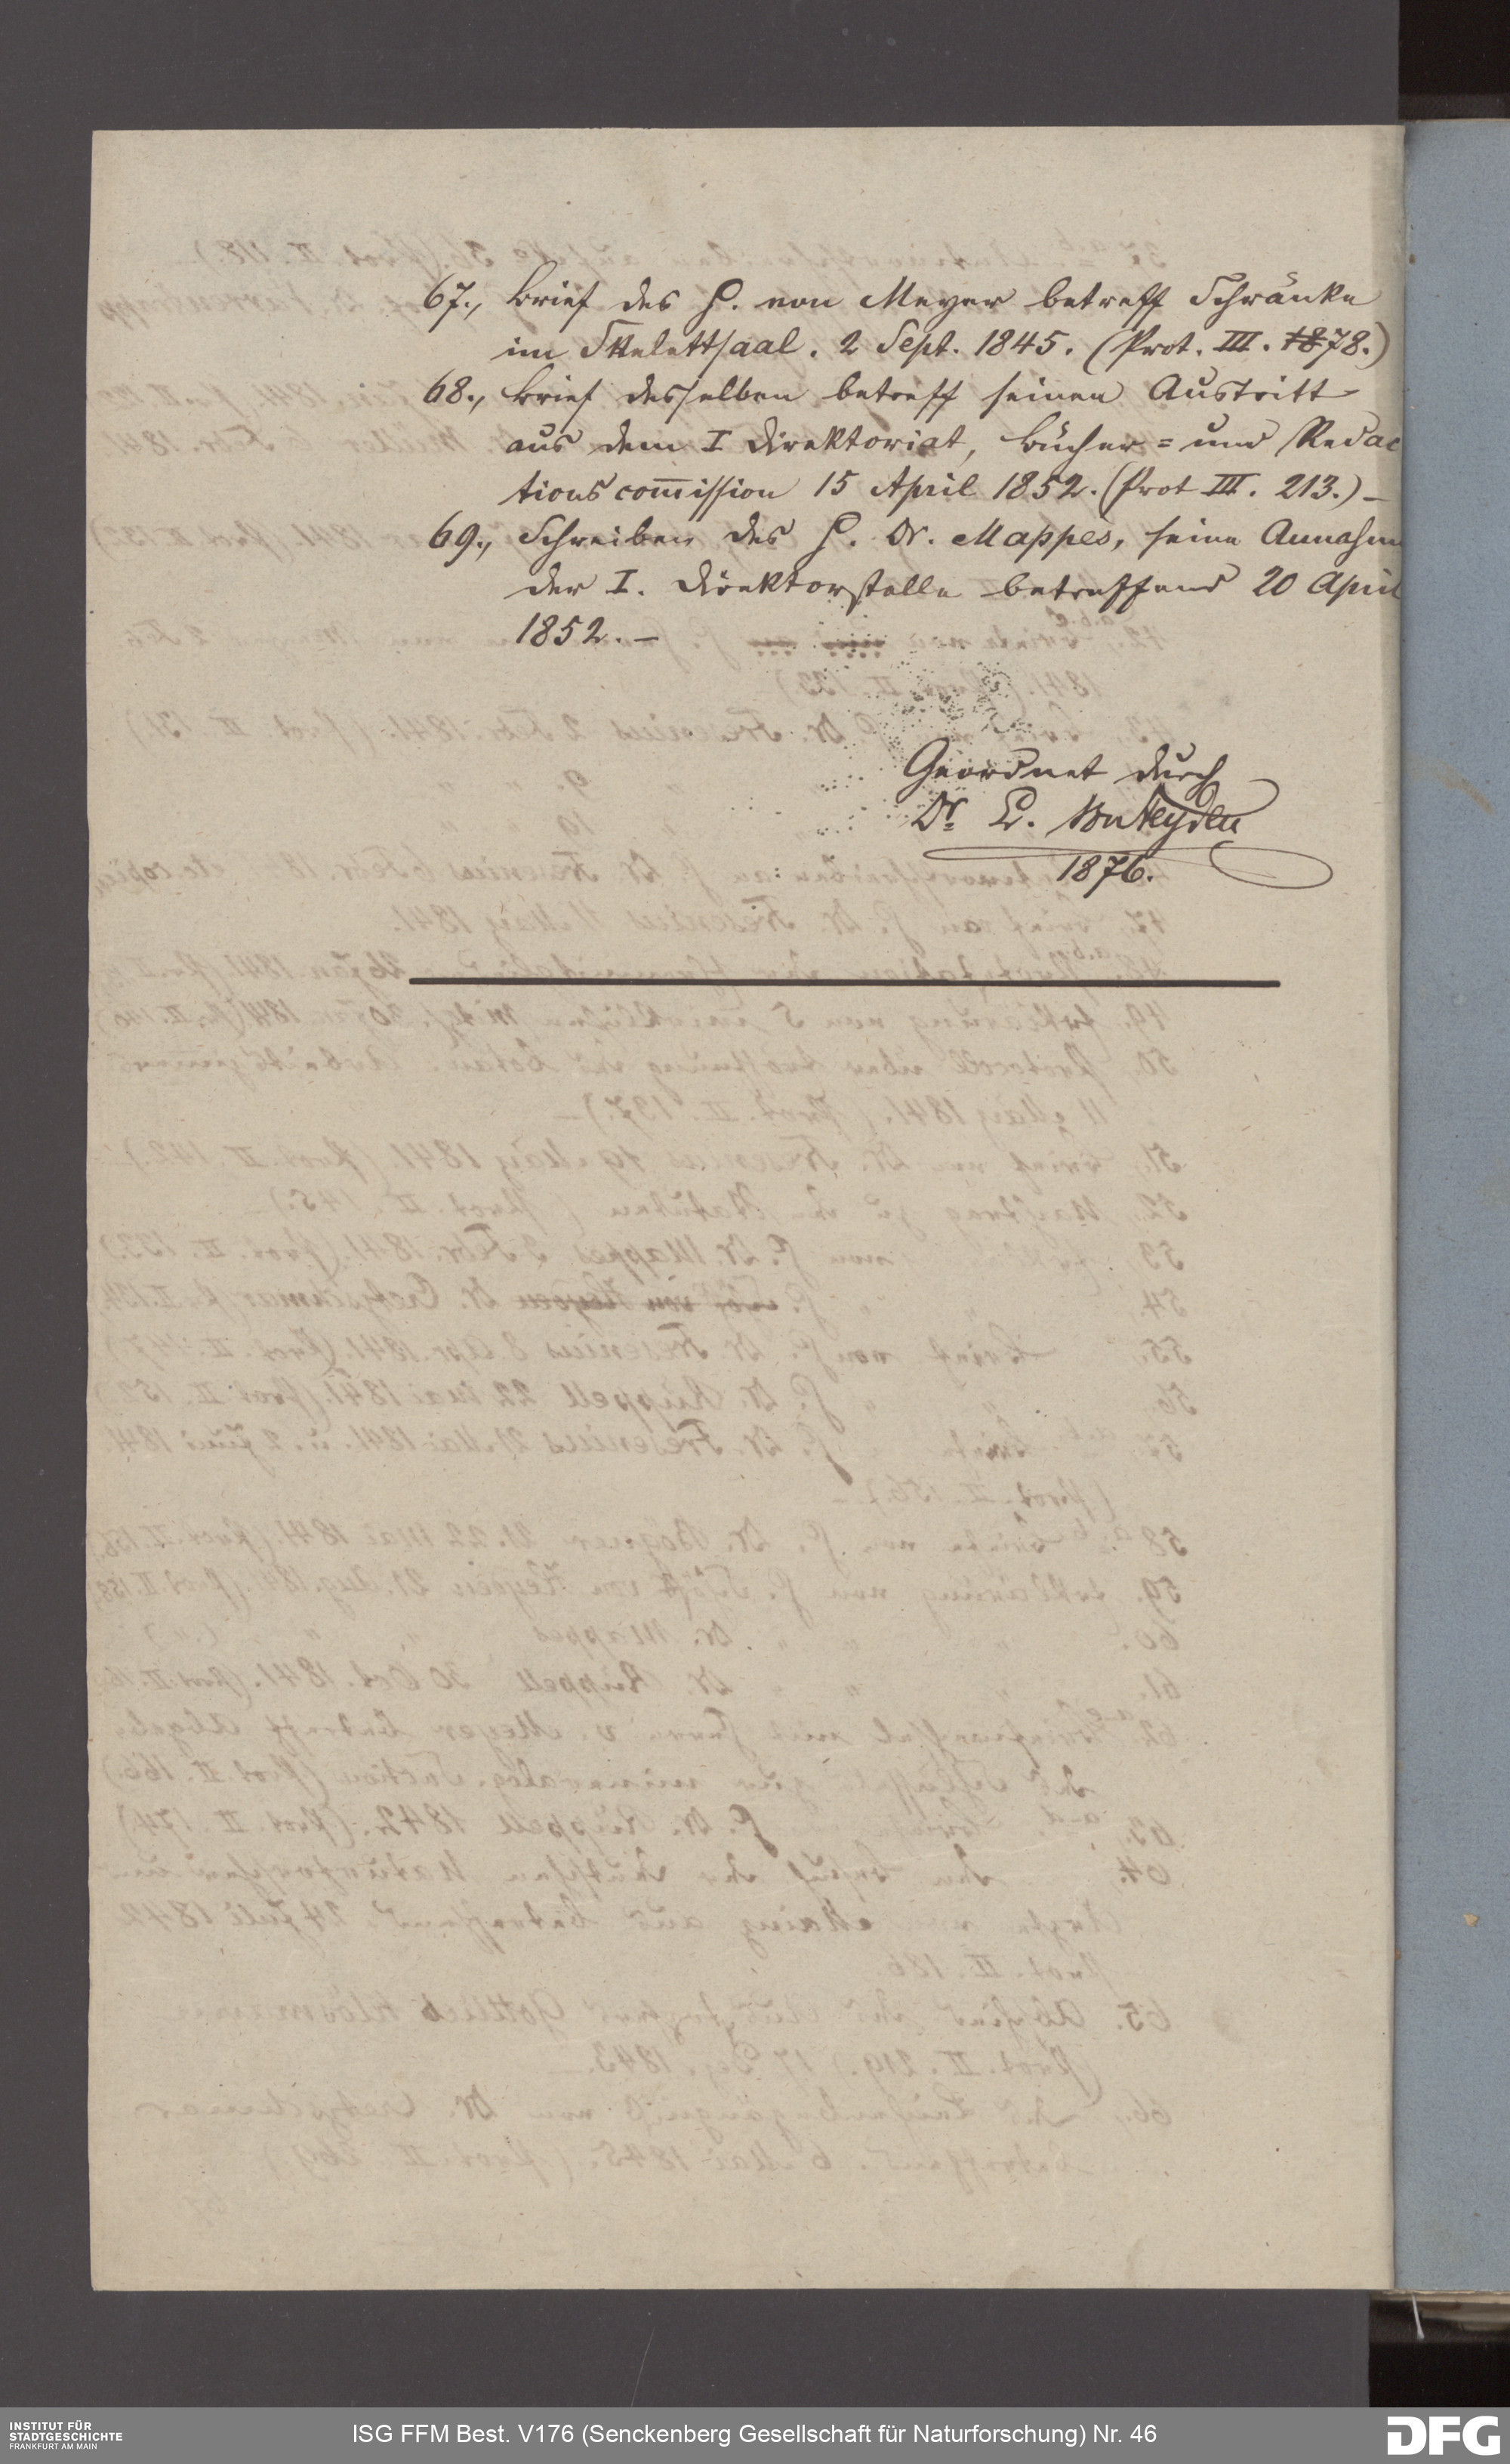 67., Brief des H. von Meyer betreff Schränke
im Skelettsaal. 2 Sept. 1845. (Prot. III. 1878.)
68., Brief desselben betreff seinen Austritt
aus dem I Direktoriat, Bücher= und Redac
tionscom̄ission 15 April 1852. (Prot III. 213.)—
69., Schreiben des H. Dr. Mappes, seine Annahm
der I. Direktorstelle betreffend 20 April
1852.—
Geordnet durch
Dr L. von Heyden
1876.
INSTITUT FÜR
STADTGESCHICHTE
FRANKFURT AM MAIN
ISG FFM Best. V176 (Senckenberg Gesellschaft für Naturforschung) Nr. 46
DFG